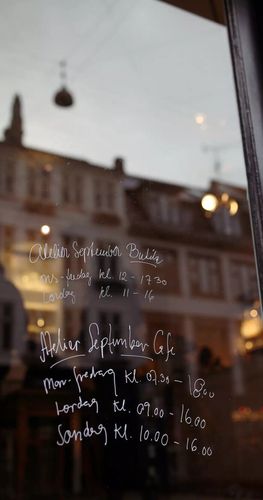 Atelier September Butik
man-fredag kl. 12 - 17.30
Lørdag kl. 11 - 16
Atelier September Cafe
Man-fredag kl. 07.30 - 18.00
Lørdag kl. 09.00 - 16.00
Søndag kl. 10.00 - 16.00